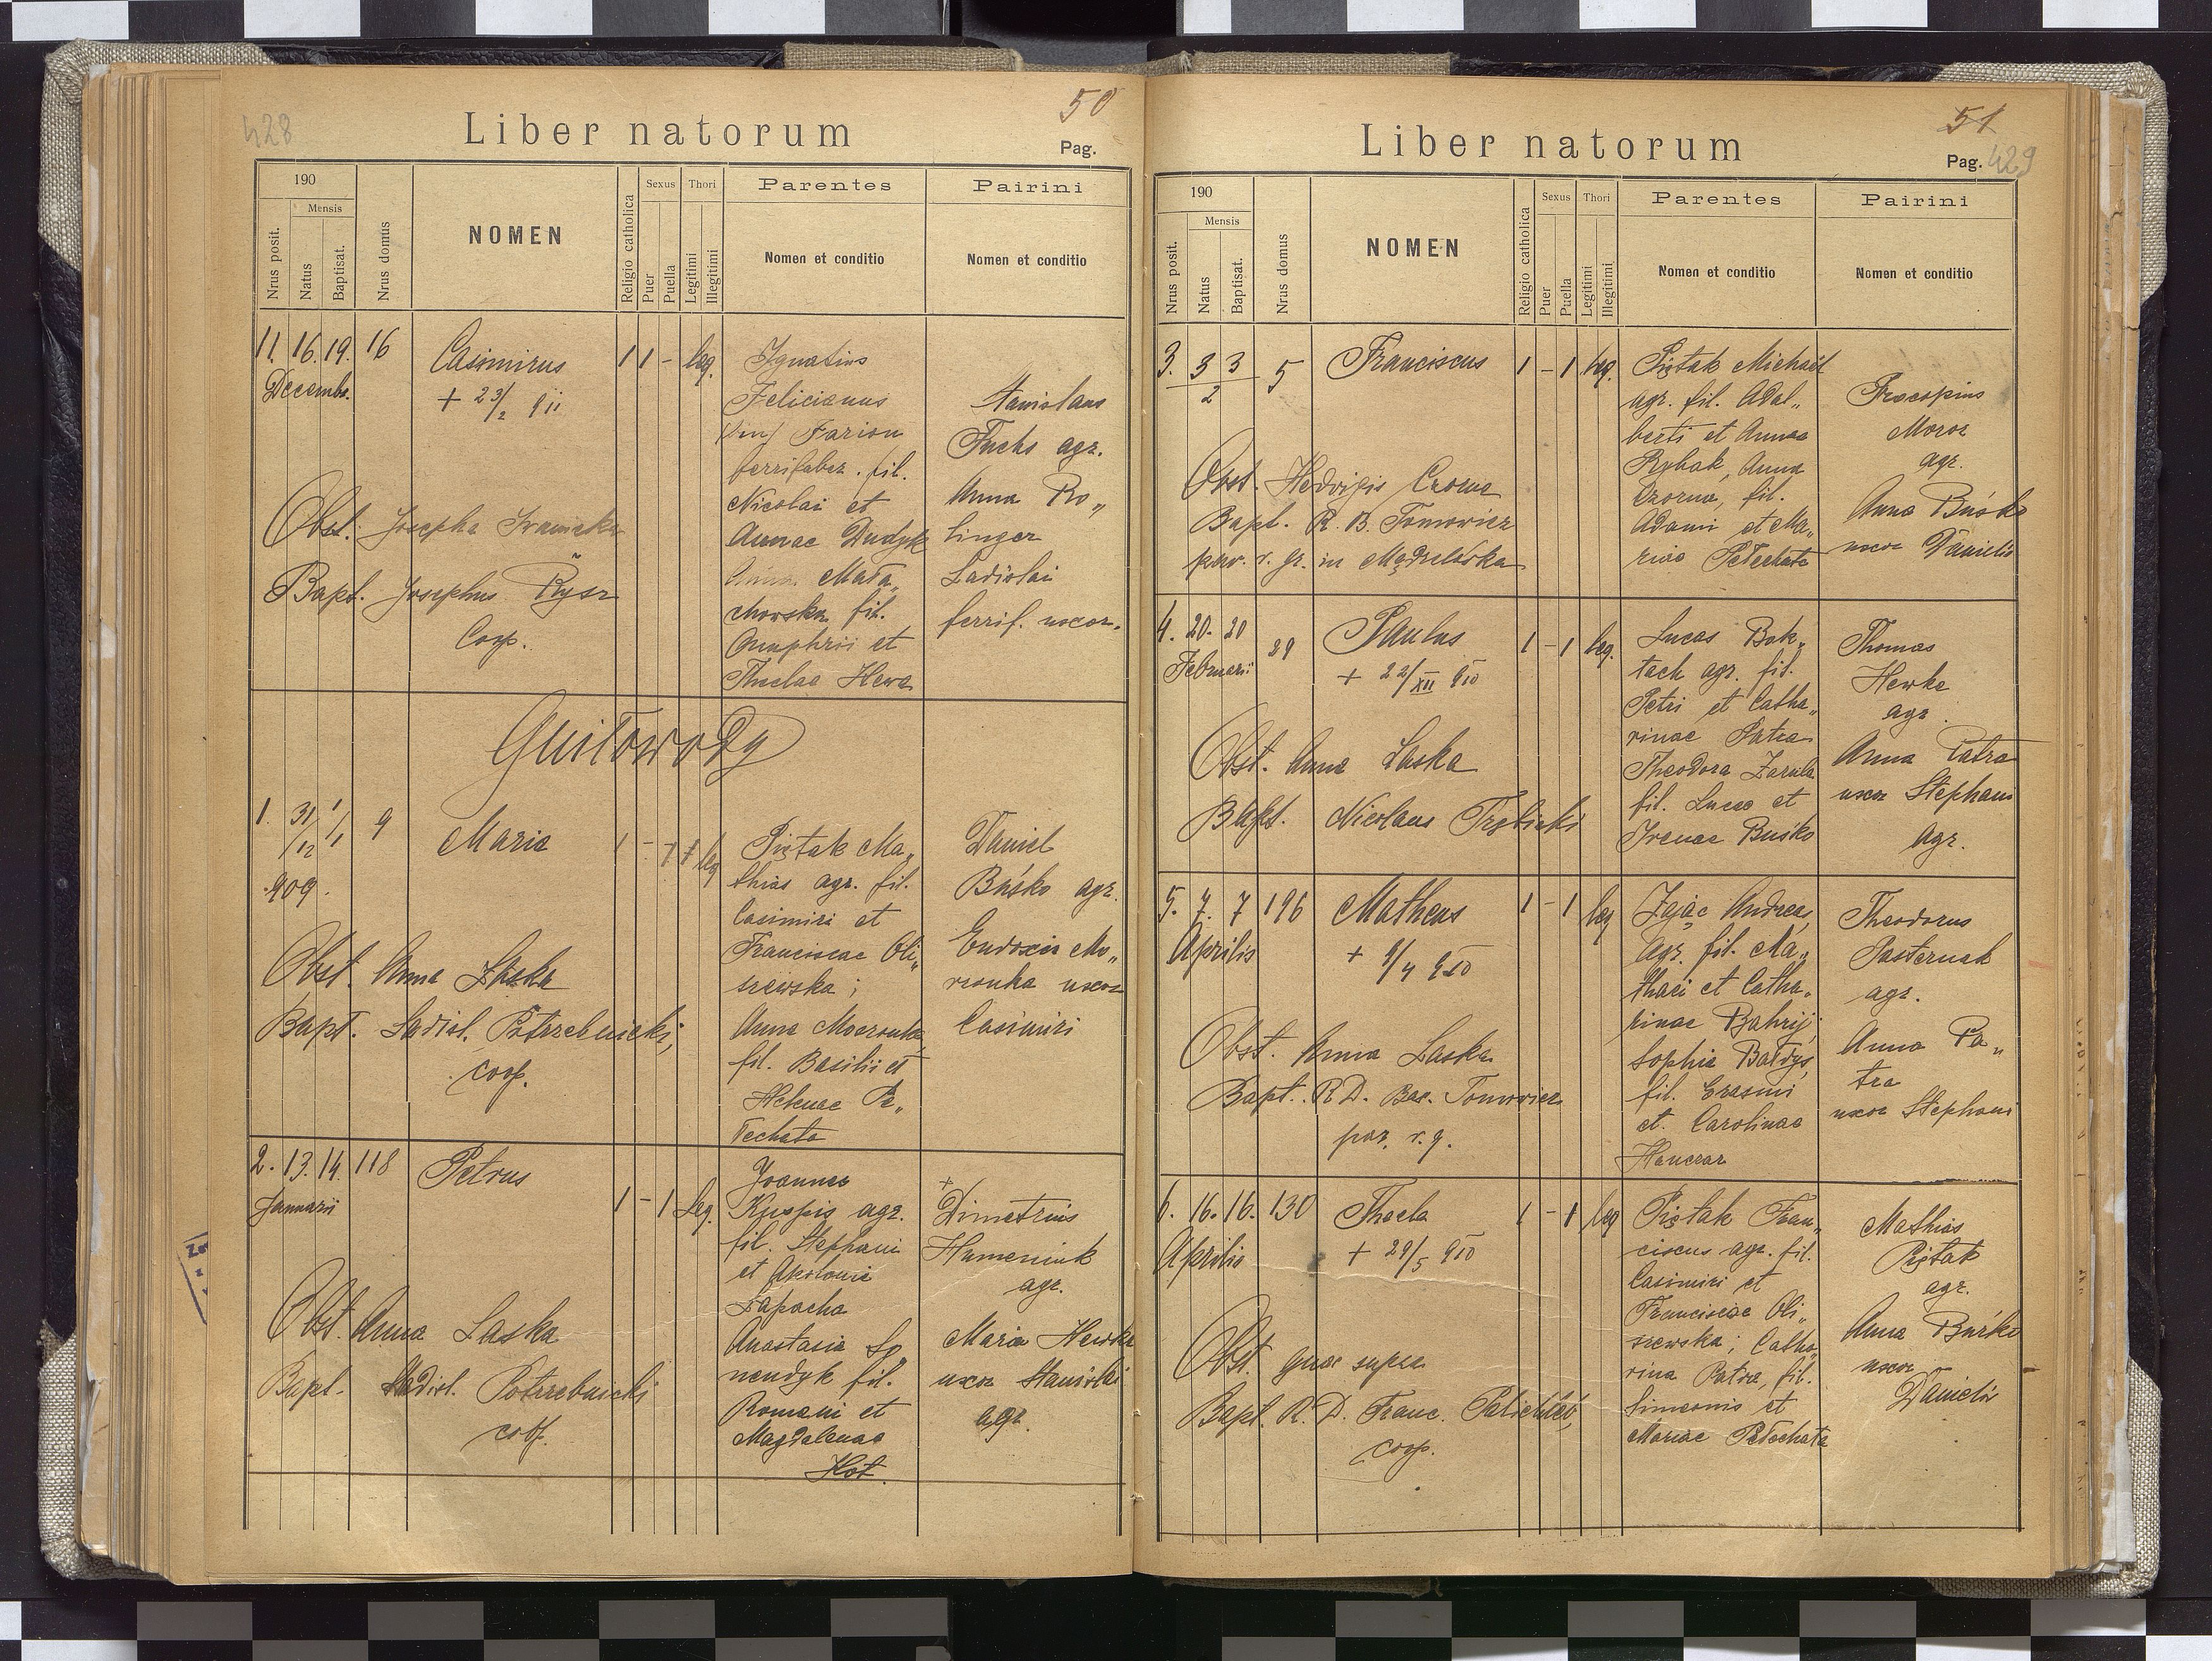 428
50
Liber natorum
Pag.
190
Mensis
Nrus posit.
Natus
Baptisat.
Nrus domus
NOMEN
Religio catholica
Sexus
Puer
Puella
Thori
Legitimi
Illegitimi
Parentes
Nomen et conditio
Pairini
Nomen et conditio
11. 16. 19. 16
Decembr.
Casimirus
+ 23/2 911
1 1 - leg.
Ignatius
Felicianus
Farion
ferrifaber. fil.
Nicolai et
Annae Dudyk
fil.
Onuphrii et
Theclae Hewa
Stanislaus
Fuchs agr.
Anna Ro„
linger
Ladislai
ferrif. uxor.
Obst. Josepha
Bapt. Josephus Rysz
Coop.
Gniłowody
1. 31/12 1/1 9
909.
Maria
1 - 1 leg
Piętak Ma„
thias agr. fil.
Casimiri et
Franciscae Oli„
szewska;
Anna Moczonka
fil. Basilii et
Helenae Pe„
łechata
Daniel
Buśko agr.
Eudoxia Mo„
czonka uxor
Casimiri
Obst. Anna Laska
Bapt. Ladisl. Potrzebnicki,
coop.
2. 13. 14. 118
Januarii
Petrus
1 - 1 Leg.
Joannes
Kuspis agr.
fil. Stephani
et Apolonia
Łapacha
Anastasia
fil.
Romani et
Magdalenae
Hot.
+
Dimetrius
Humeniuk
agr.
Maria Hewka
uxor Stanislai
agr.
Obst. Anna Laska
Bapt. Ladisl. Potrzebnicki
coop.
51
Liber natorum
Pag. 429
190
Mensis
Nrus posit.
Natus
Baptisat.
Nrus domus
NOMEN
Religio catholica
Sexus
Puer
Puella
Thori
Legitimi
Illegitimi
Parentes
Nomen et conditio
Pairini
Nomen et conditio
3. 3 3 5
2
Franciscus
1 - 1 leg.
Piętak Michael
agr. fil. Adal„
berti et Annae
Rybak, Anna
fil.
Adami et Ma„
riae Pełechata
Procopius
Moroz
agr.
Anna Buśko
uxor Danielis
Obst. Hedvigis
Bapt. R. D. Tomowicz
par. r. gr. in Mądzelówka
4. 20. 20 29
Februarii
Paulus
+ 22/XII 910
1 - 1 leg.
Lucas Bok„
tach agr. fil.
Petri et Catha„
rinae Patra
Theodora Zarula
fil. Lucae et
Irenae Buśko
Thomas
Hewko
agr.
Anna Patra
uxor Stephani
agr.
Obst. Anna Laska
Bapt. Nicolaus
5. 7. 7 196
Aprilis
Matheus
+ 9/4 910
1 - 1 leg
Zając Andreas,
agr. fil. Ma„
thaei et Catha„
rinae Bahrij
Sophia Bałdys,
fil. Erasmi
et Carolinae
Hanczar
Theodorus
Pasternak
agr.
Anna Pa„
tra
uxor Stephani
Obst. Anna Laska
Bapt. R. D. Bas. Tomowicz
par. r. g.
6. 16. 16. 130
Aprilis
Thecla
+ 29/5 910
1 - 1 leg
Piętak Fran„
ciscus agr. fil.
Casimiri et
Franciscae Oli„
szewska; Catha„
rina Patra, fil.
Simeonis et
Mariae Pełechata
Mathias
Piętak
agr.
Anna Buśko
uxor
Danielis
Obst. quae supra
Bapt. R. D. Franc.
coop.